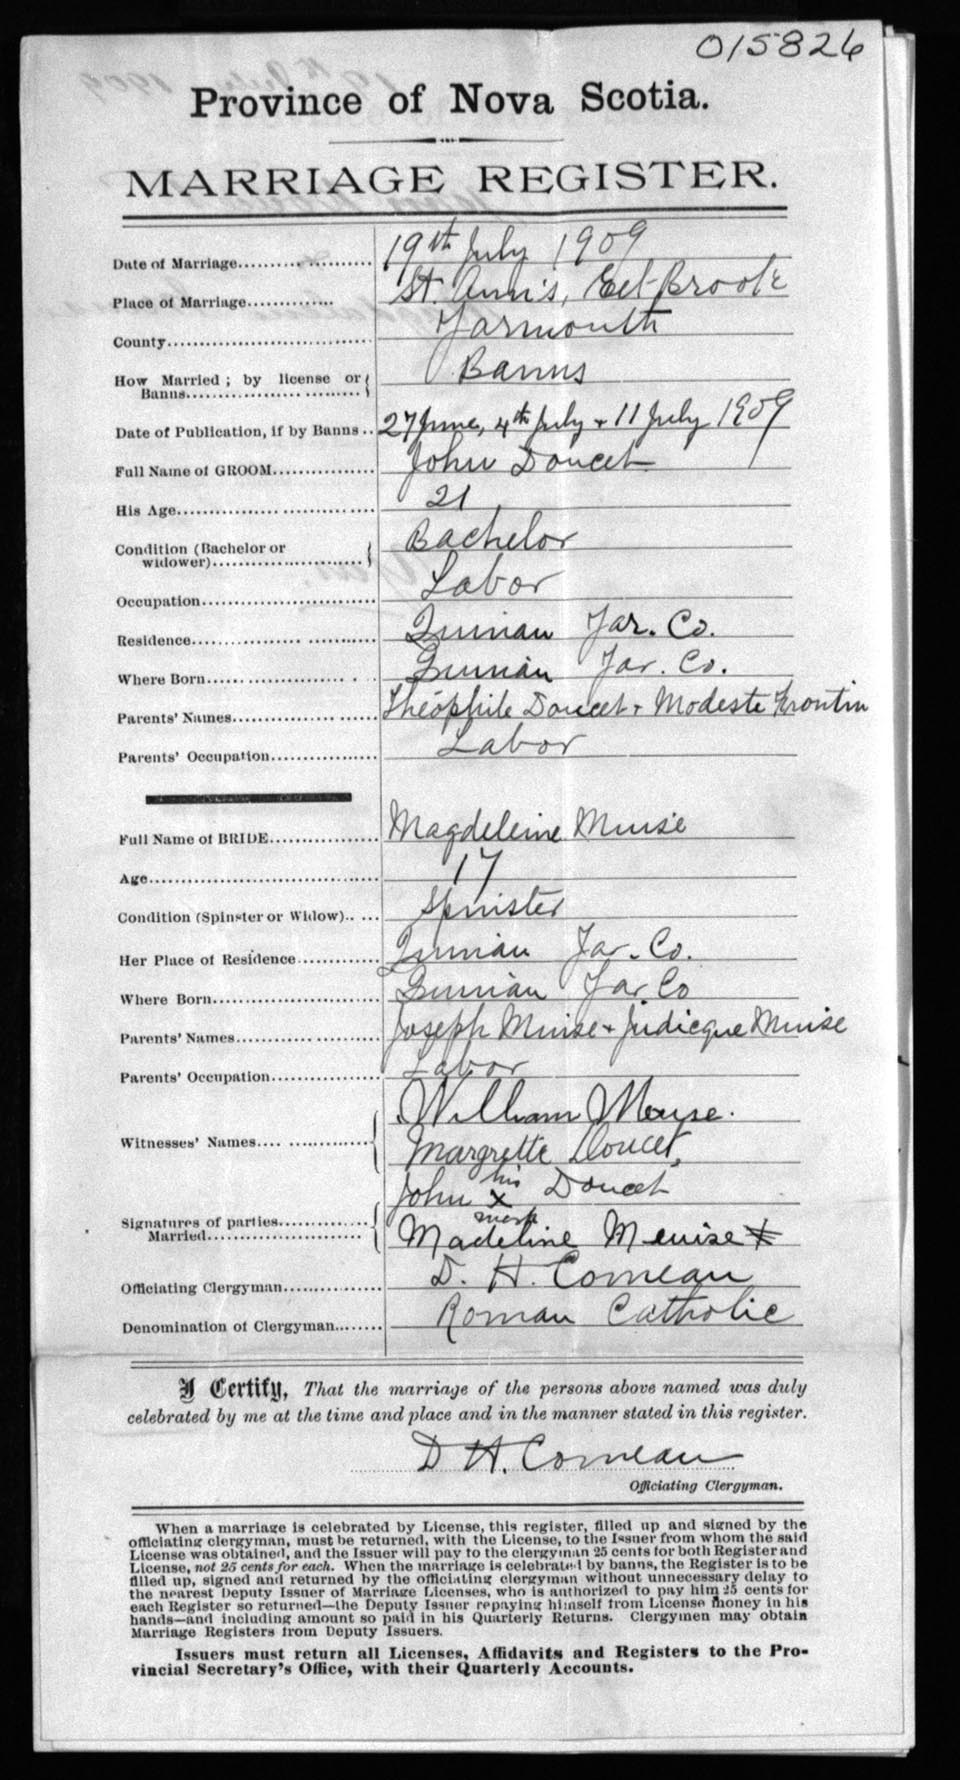 015826
Province of Nova Scotia.
MARRIAGE REGISTER.
Date of Marriage 19th July 1909
Place of Marriage St. Ann's, Eel Brook
County Yarmouth
How Married ; by license or Banns Banns
Date of Publication, if by Banns 27 June, 4th July + 11 July 1909
Full Name of GROOM John Doucet
His Age 21
Condition (Bachelor or widower) Bachelor
Occupation Labor
Residence Quinan Yar. Co.
Where Born Quinan Yar. Co.
Parents' Names Théophile Doucet + Modeste Frontin
Parents' Occupation Labor
Full Name of BRIDE Magdeleine Muise
Age 17
Condition (Spinster or Widow) Spinster
Her Place of Residence Quinan Yar. Co.
Where Born Quinan Yar Co
Parents' Names Joseph Muise + Judicque Muise
Parents' Occupation Labor
Witnesses' Names William Meuse.
Margrette Doucet,
Signatures of parties Married John his x mark Doucet
Madeline Meuise
Officiating Clergyman D. H. Comeau
Denomination of Clergyman Roman Catholic
I Certify, That the marriage of the persons above named was duly
celebrated by me at the time and place and in the manner stated in this register.
D H. Comeau
Officiating Clergyman.
When a marriage is celebrated by License, this register, filled up and signed by the
officiating clergyman, must be returned, with the License, to the Issuer from whom the said
License was obtained, and the Issuer will pay to the clergyman 25 cents for both Register and
License, not 25 cents for each. When the marriage is celebrated by banns, the Register is to be
filled up, signed and returned by the officiating clergyman without unnecessary delay to
the nearest Deputy Issuer of Marriage Licenses, who is authorized to pay him 25 cents for
each Register so returned—the Deputy Issuer repaying himself from License money in his
hands—and including amount so paid in his Quarterly Returns. Clergymen may obtain
Marriage Registers from Deputy Issuers.
Issuers must return all Licenses, Affidavits and Registers to the Pro-
vincial Secretary's Office, with their Quarterly Accounts.